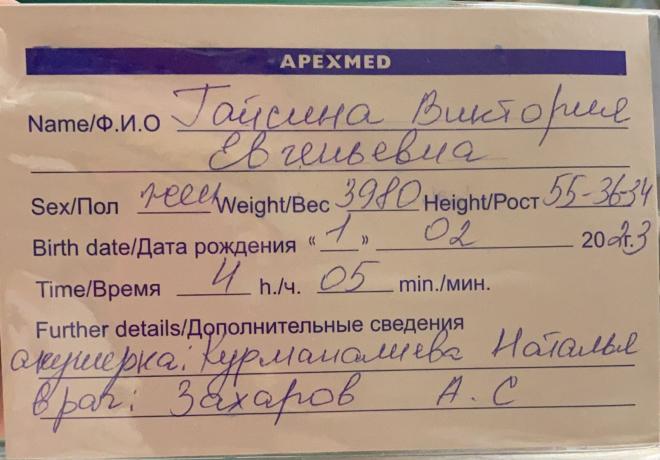 APEXMED
Name/Ф.И.О Гайсина Виктория
Евгеньевна
Sex/Пол жен Weight/Вес 3980 Height/Рост 55-36-34
Birth date/Дата рождения « 1 » 02 2023
Time/Время 4 h./ч. 05 min./мин.
Further details/Дополнительные сведения
акушерка: Курманалиева Наталья
врач: Захаров А. С